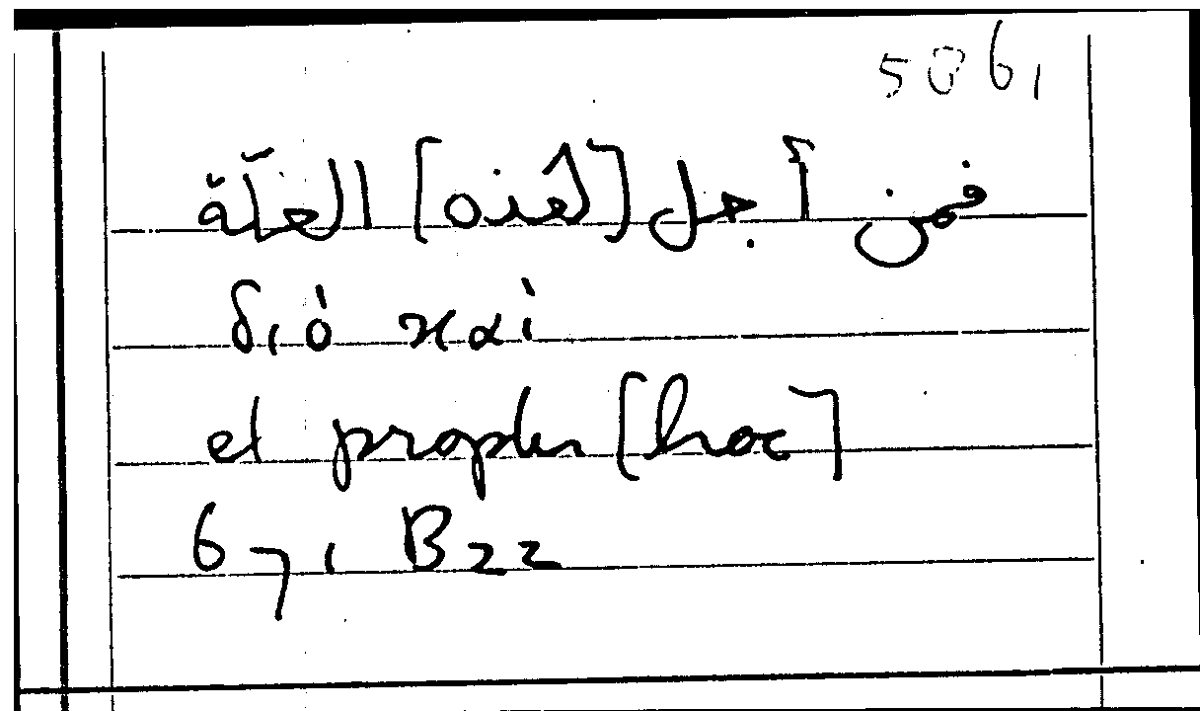 506,
فمن أجل [هذه] العلّة
διὸ καὶ
et propter [hoc]
671 B22